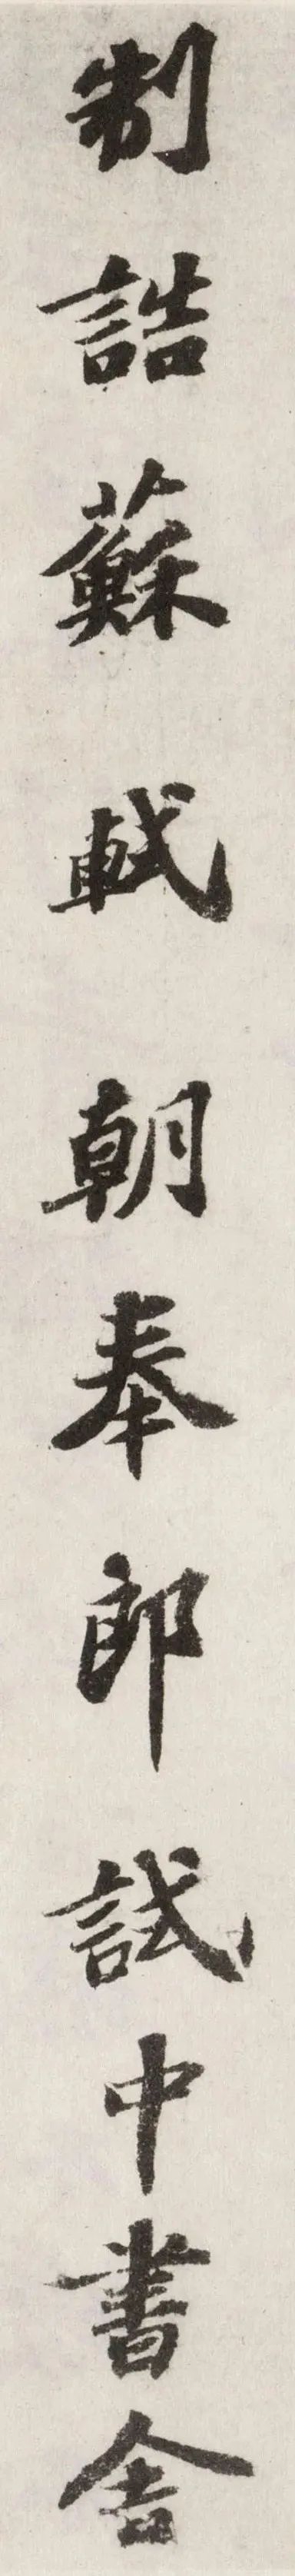 制誥蘇軾朝奉郎試中書舍